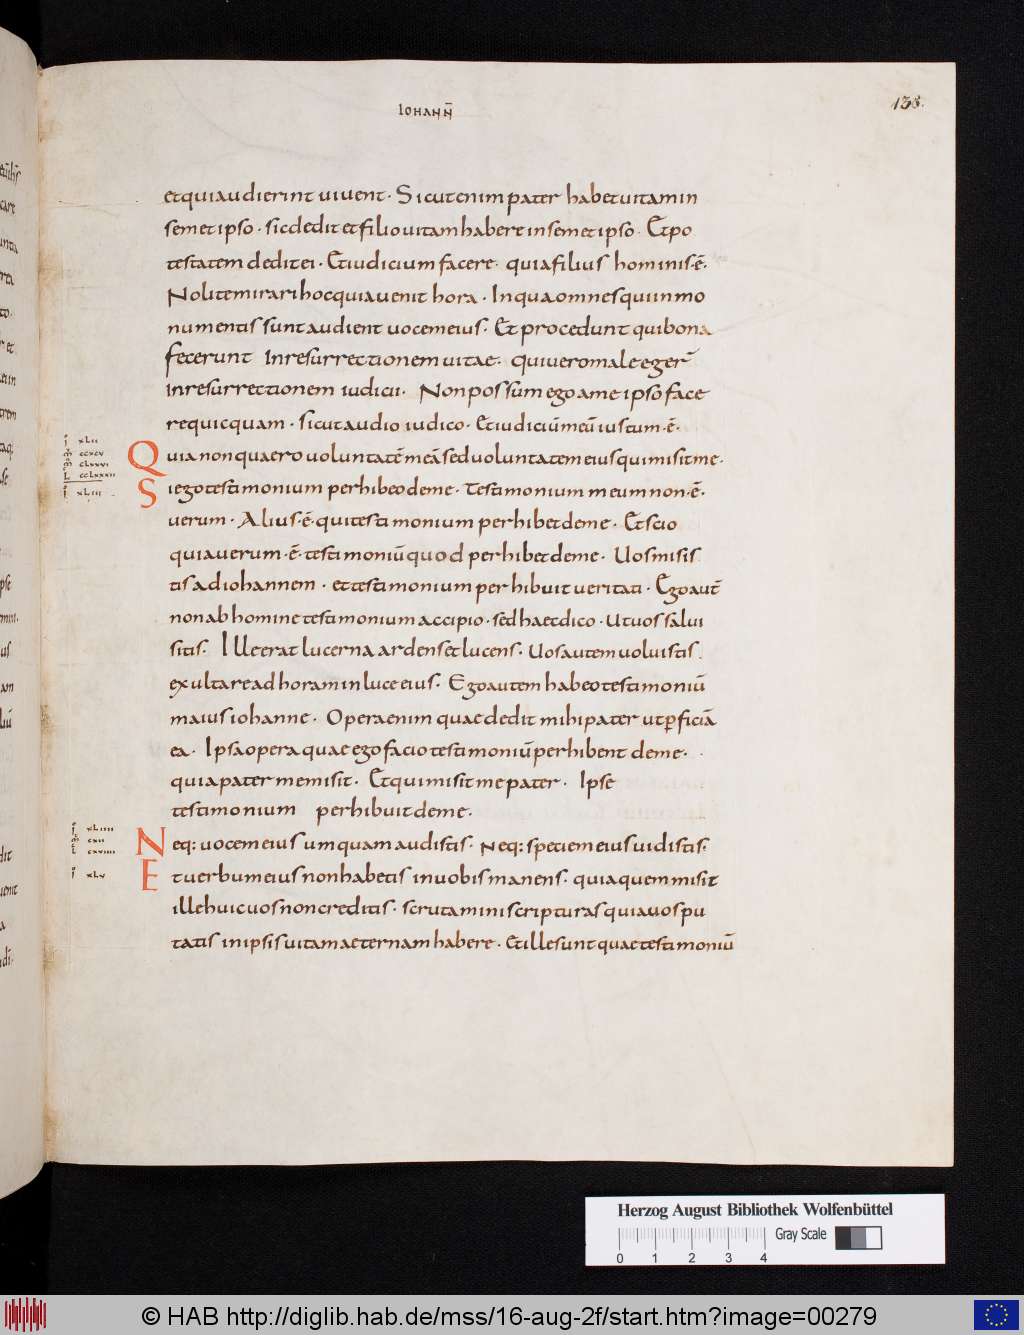 IOHANN̄
138.
et qui audierint vivent · Sicut enim pater habet uitam in
semet ipso · sic dedit et filio uitam habere in semet ipso · Et po
testatem dedit ei · Et iudicium facere · quia filius hominis · ē ·
Nolite mirari hoc quia uenit hora · In qua omnes qui in mo
numentis sunt audient uocem eius · Et procedunt qui bona
fecerunt In resurrectionem uitae · qui uero male egeř
in resurrectionem iudicii · Non possum ego a me ipso face
re quicquam · sicut audio iudico · Et iudiciū meū iustum · ē ·
i xLii
m̊ ccxcv
m̊ cLxxvi
L ccLxxxii
Quia non quaero uoluntatē meā sed uoluntatem eius qui misit me ·
i xLiii
Si ego testimonium perhibeo de me · testimonium meum non · ē ·
uerum · Alius · ē · qui testimonium perhibet de me · Et scio
quia uerum · ē · testimoniū quod perhibet de me · Uos misis
tis ad iohannem · et testimonium perhibuit ueritati · Ego aut̄
non ab homine testimonium accipio · sed haec dico · Ut uos salui
sitis · Ille erat lucerna ardens et lucens · Uos autem uoluistis
exultare ad horam in luce eius · Ego autem habeo testimoniū
maius iohanne · Opera enim quae dedit mihi pater ut ꝑficiā
ea · Ipsa opera quae ego facio testimoniū perhibent de me ·
quia pater me misit · Et qui misit me pater · Ipse
testimonium perhibuit de me ·
i xLiiii
m̊ cxii
L cxviiii
Neq: uocem eius umquam audistis · Neq: speciem eius uidistis ·
i xLv
Et uerbum eius non habetis in uobis manens · quia quem misit
ille huic uos non creditis · scrutamini scripturas quia uos pu
tatis in ipsis uitam aeternam habere · Et ille sunt quae testimoniū
Herzog August Bibliothek Wolfenbüttel
Gray Scale
0 1 2 3 4
© HAB http://diglib.hab.de/mss/16-aug-2f/start.htm?image=00279